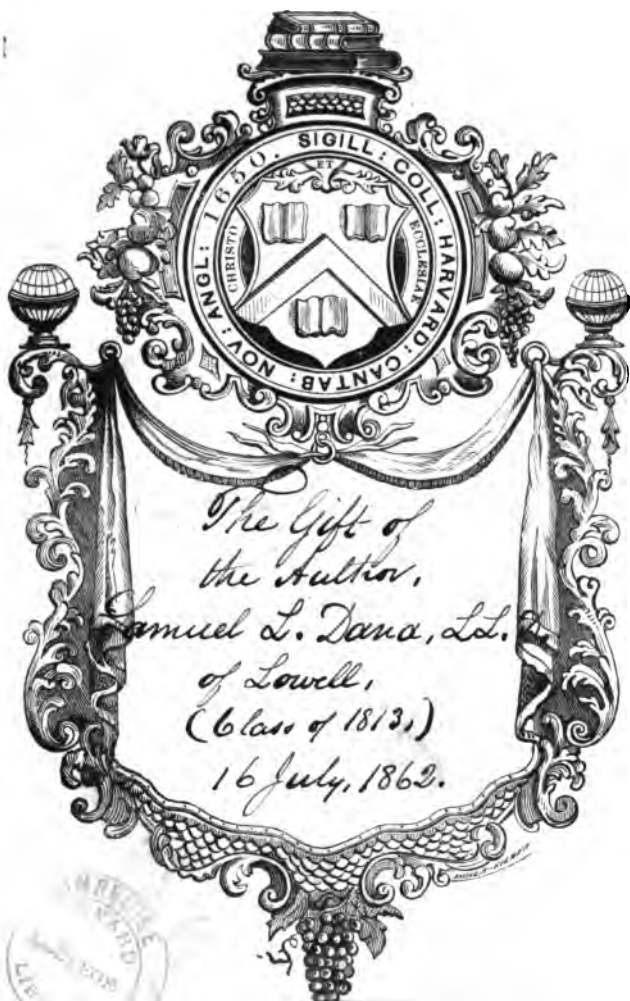 SIGILL: COLL: HARVARD: CANTAB: NOV: ANGL: 1650.
ET
CHRISTO
ECCLESIAE
The Gift of
the Author,
Samuel L. Dana, LL.
of Lowell,
(Class of 1813.)
16 July, 1862.